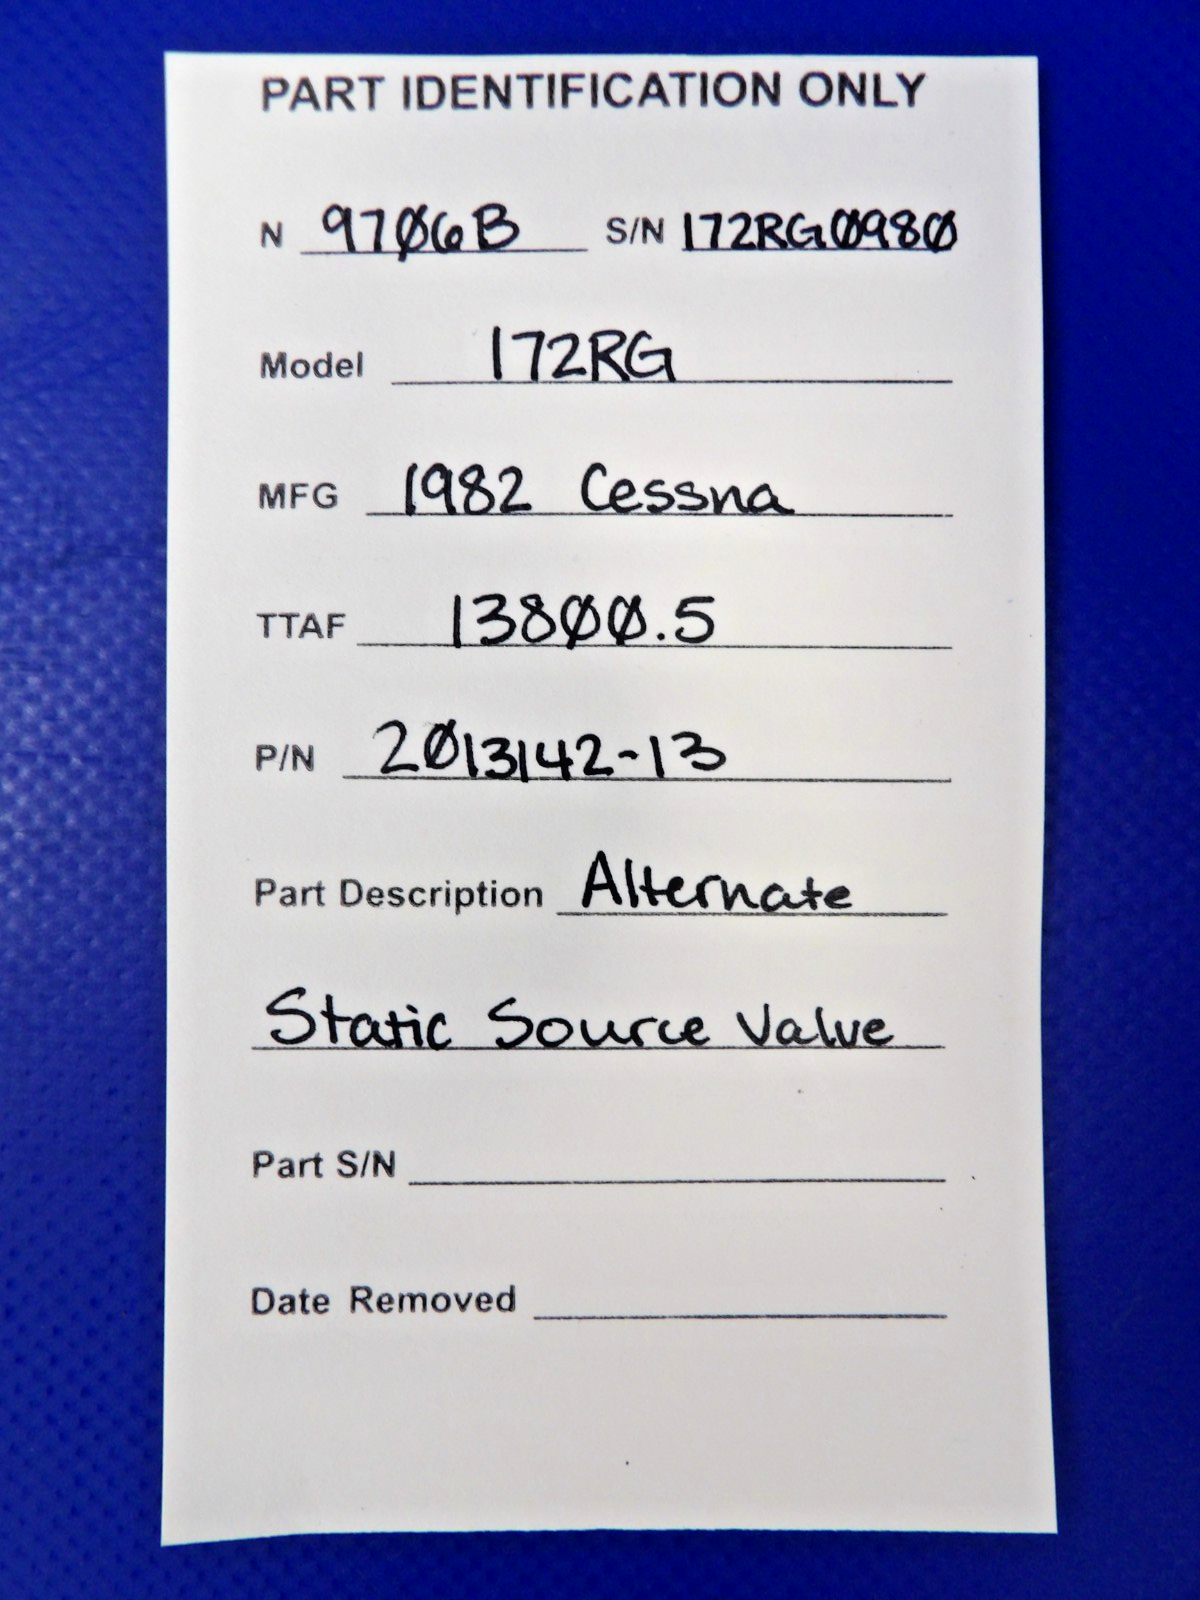 PART IDENTIFICATION ONLY
N 9706B S/N 172RG0980
Model 172RG
MFG 1982 Cessna
TTAF 13800.5
P/N 2013142-13
Part Description Alternate
Static Source Valve
Part S/N
Date Removed